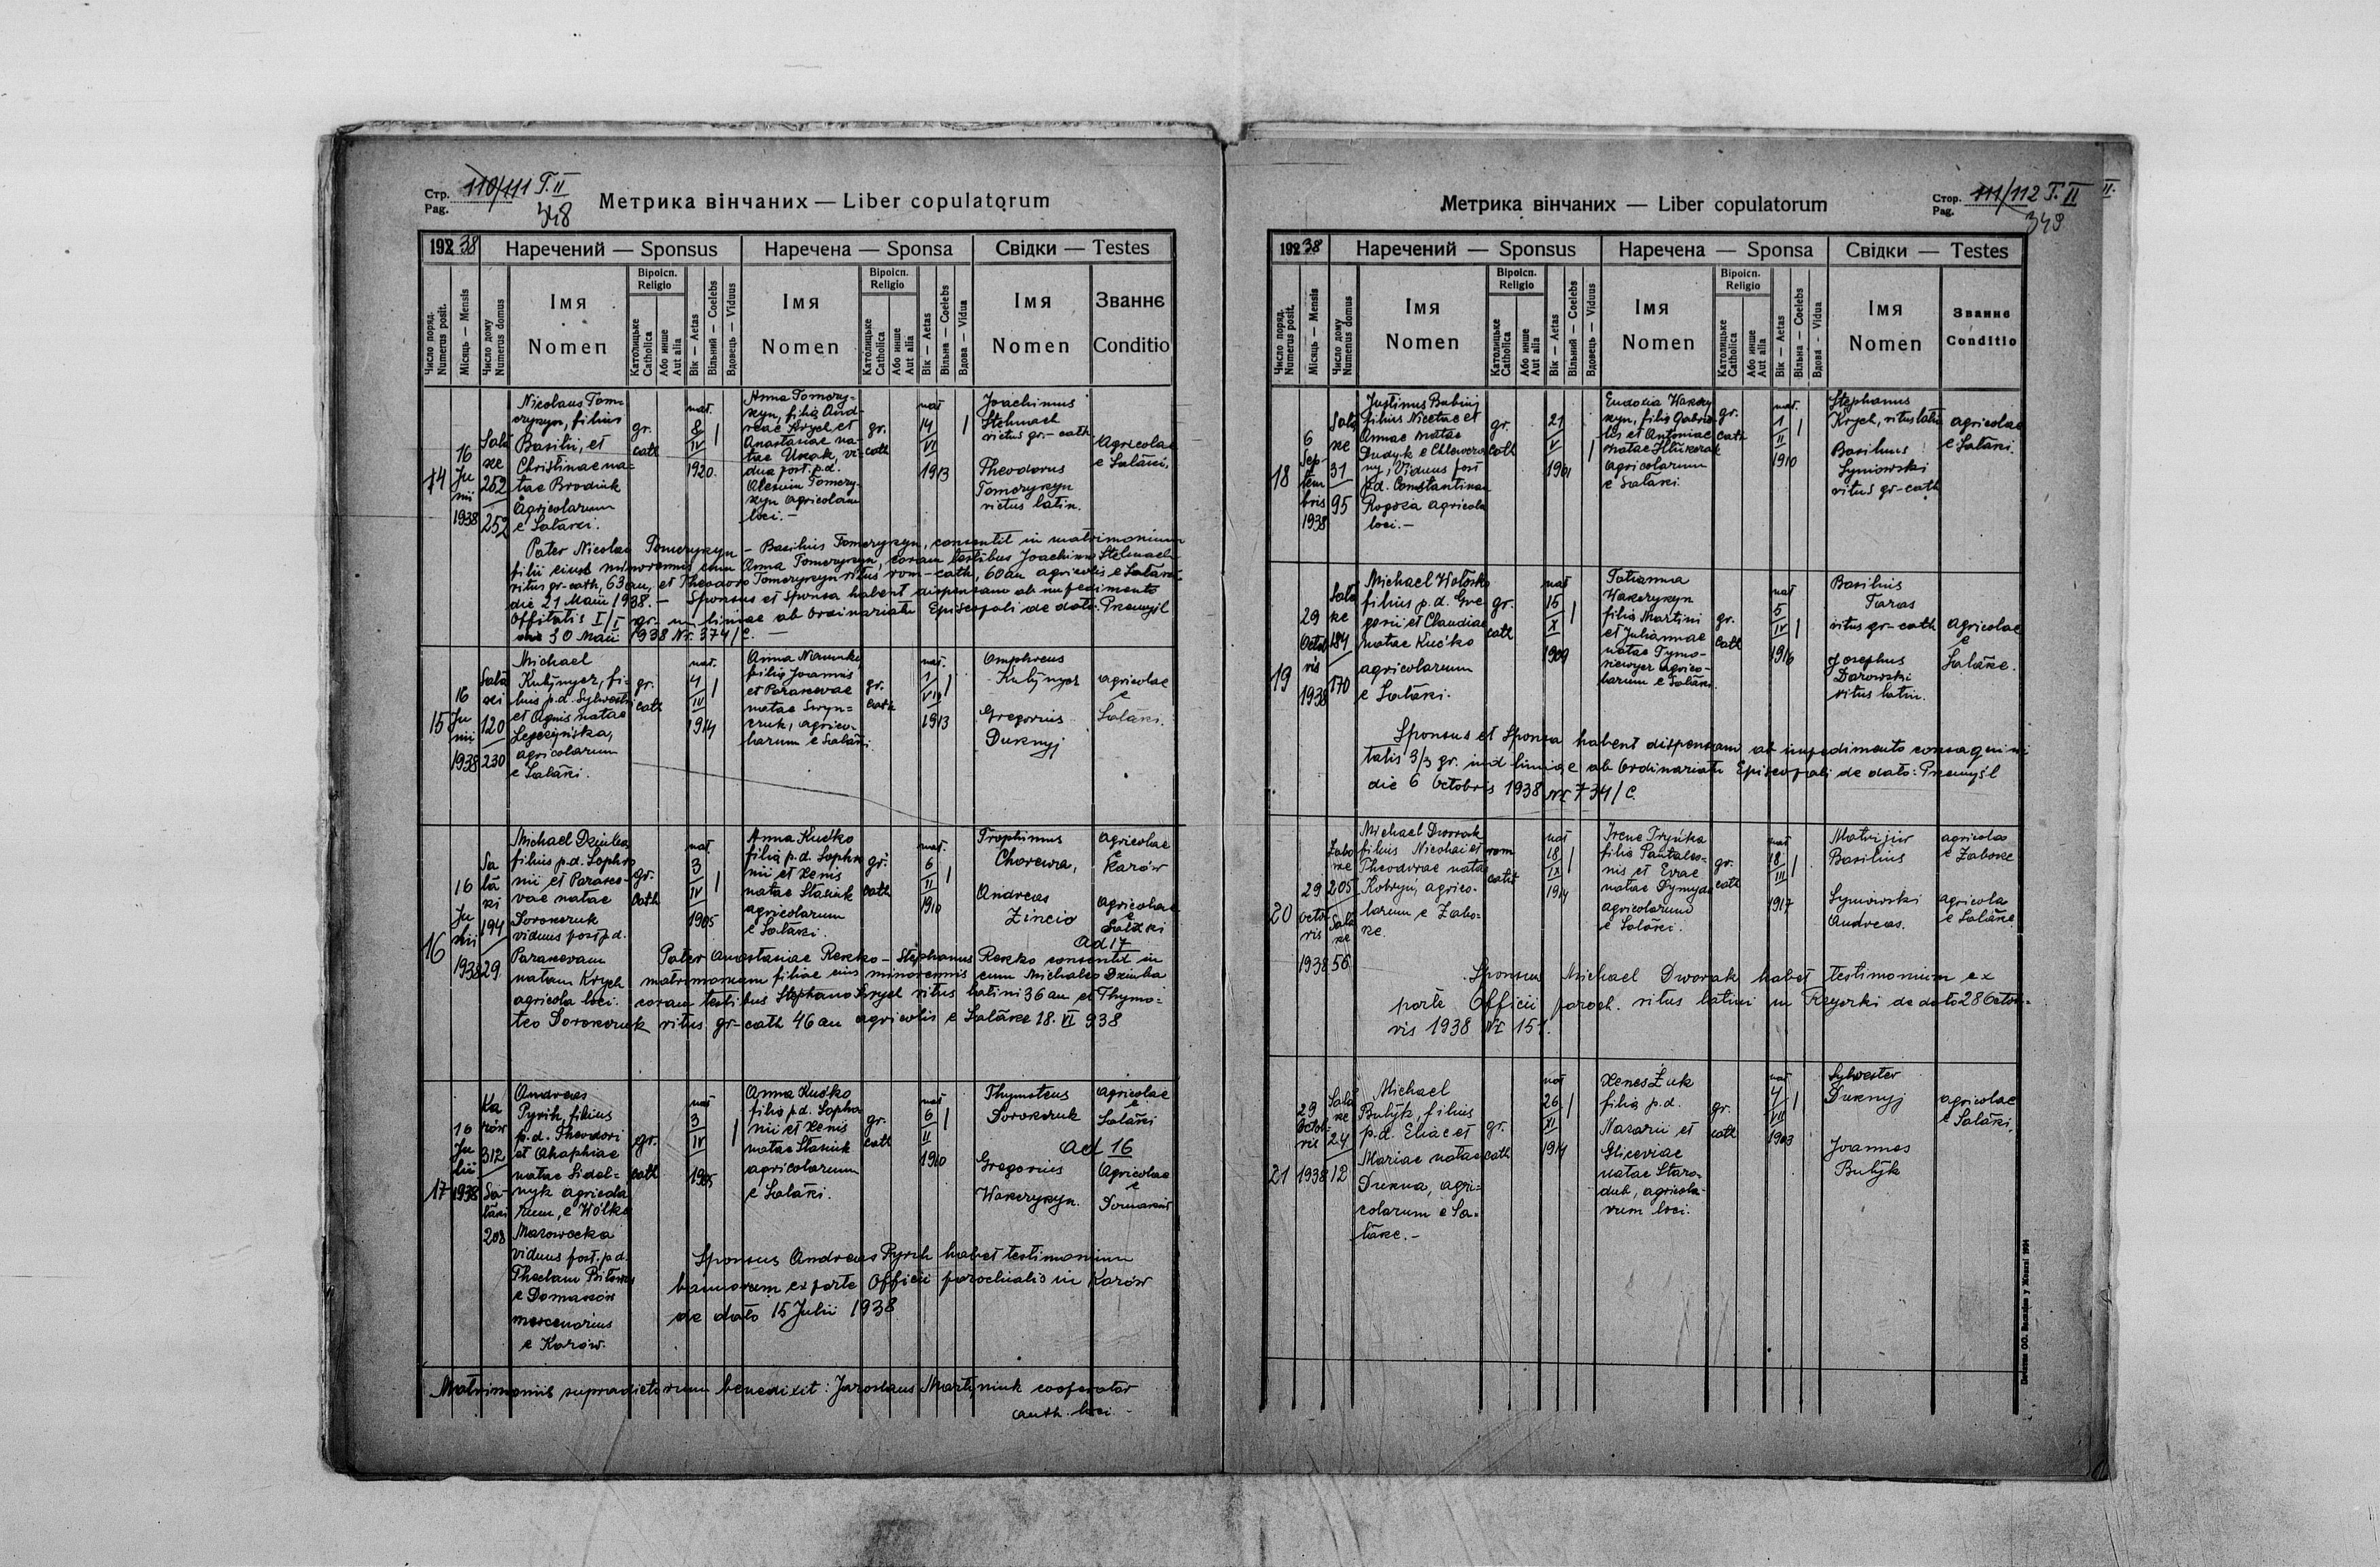 Стр.
Pag.
110/111 T. II
348
Метрика вінчаних — Liber copulatorum
1938
Наречений — Sponsus
Наречена — Sponsa
Свідки — Testes
Число поряд.
Numerus posit.
Місяць — Mensis
Число дому
Numerus domus
Імя
Nomen
Віроісп.
Religio
Католицьке
Catholica
Або инше
Aut alia
Вік — Aetas
Вільний — Coelebs
Вдовець — Viduus
Імя
Nomen
Віроісп.
Religio
Католицьке
Catholica
Або инше
Aut alia
Вік — Aetas
Вільна — Coelebs
Вдова — Vidua
Імя
Nomen
Званнє
Conditio
14
16
Ju
nii
1938
252
252
Nicolaus Tom-
filius
Basilii, et
Christinae na-
tae Brodiuk
Agricolarum
e Sałaśki.
gr.
cath
nat.
8
IV
1920.
Anna Tomczy-
kyn, filia And-
reae Krych et
Anastasiae na-
tae Uszak, vi-
dua post. p.d.
agricolam
loci. —
gr.
cath
nat
14
VI
1913
Joachimus
Stelmach
ritus gr.-cath
Theodorus
Tomczykyn
ritus latin.
Agricolae
e Sałaśki,
Pater Nicolai Tomczykyn — Basilius Tomczykyn, consentit in matrimonium
filii eius minorennis cum Anna Tomczykyn, coram testibus Joachimo Stelmach
ritus gr-cath, 63 an, et Theodoro Tomczykyn ritus rom-cath, 60 an agricolis e Sałaśki
die 21 Maii 1938. — Sponsus et Sponsa habent dispensam ab impedimento
I/I gr. in liniae ab Ordinariatu Episcopali de dato: Przemyśl
30 Maii 1938 Nr. 374/C. —
15
16
Ju
nii
1938
120
230
Michael
Kułynycz, fi-
lius p.d. Sylwestri
et Agnis natae
agricolarum
e Sałaśki.
gr.
cath
nat.
4
IV
1914
Anna
filia Joannis
et Parascevae
natae Swyn-
czuk, agrico-
larum e Sałaśki
gr.
cath
nat.
1
VII
1913
Omphreus
Kułynycz
Gregorius
Duknyj
agricolae
e
Sałaśki.
16
16
Ju
lii
1938
Sa
ła
ki
194
29
Michael Dziuba
filius p.d. Sophro
nii et Parasce-
vae natae
Dorokzuk
viduus post p.d.
Parascevam
natam Krych
agricola loci.
gr.
cath
nat.
3
IV
1905
Anna Kućko
filia p.d. Sophro
nii et Xenis
natae Stasiuk
agricolarum
e Sałaśki.
gr.
cath
nat.
6
II
1910
Trophimus
Andreas
Zincio
agricolae
e
Karów
agricolae
e
Sałaśki
Ad 17
Pater Anastasiae Reszko — Stephanus Reszko consentit in
matrimonium filiae eius minorennis cum Michaele Dziuba
coram testibus Stephano Krych ritus latini 36 an et Thymo-
teo Dorokzuk ritus gr-cath 46 an agricolis e Sałaśke 18. VI 938
17
16
Ju
lii
1938
Ka
rów
312
Sa-
208
Andreas
Pyrih, filius
p.d. Theodori
et Ahaphiae
natae
agricola
rum, e Wólka
Mazowiecka
viduus post. p.d.
Theclam
e Domaszów
mercenarius
e Karów.
gr.
cath
nat
3
IV
1905
Anna Kućko
filia p.d. Sophro
nii et Xenis
natae Stasiuk
agricolarum
e Sałaśki.
gr.
cath
nat
6
II
1910
Thymoteus
Dorokzuk
Gregorius
Wakerykyn.
agricolae
e
Sałaśki
Ad 16
Agricolae
e
Sponsus Andreas Pyrih habet testimonium
bannorum ex parte Officii parochialis in Karów
de dato 15 Julii 1938
Matrimoniis supradictorum benedixit: Jaroslaus Martyniuk cooperator
loci.
Метрика вінчаних — Liber copulatorum
Стор.
Pag.
111/112 T. II
349
1938
Наречений — Sponsus
Наречена — Sponsa
Свідки — Testes
Число поряд.
Numerus posit.
Місяць — Mensis
Число дому
Numerus domus
Імя
Nomen
Віроісп.
Religio
Католицьке
Catholica
Або инше
Aut alia
Вік — Aetas
Вільний — Coelebs
Вдовець — Viduus
Імя
Nomen
Віроісп.
Religio
Католицьке
Catholica
Або инше
Aut alia
Вік — Aetas
Вільна — Coelebs
Вдова - Vidua
Імя
Nomen
Званнє
Conditio
18
6
Sep-
tem
bris
1938
31
95
Justinus
filius Nicetae et
Annae natae
Dudyk e
Viduus post
p.d. Constantinam
agricola
loci. —
gr.
cath
21
V
1901
Eudoxia
filia Gabrie-
lis et Antoniae
natae
agricolarum
e Sałaśki.
gr.
cath
nat.
1
II
1910
Stephanus
Krych, ritus latin
Basilius
Syniowski
ritus gr-cath
agricolae
e Sałaśki.
19
29
Octob
ris
1938
184
170
Michael
filius p.d. Gre
gorii et Claudiae
natae Kućko
agricolarum
e Sałaśki.
gr.
cath
nat
15
X
1909
Tatianna
Wakerykyn
filia Martini
et Juliannae
natae Tymo-
agrico-
larum e Sałaśki
gr.
cath
nat
5
IV
1916
Basilius
Taras
ritus gr-cath
Josephus
Darowski
ritus latin.
agricolae
e
Sałaśke.
Sponsus et Sponsa habent dispensam ab impedimento consaguini
tatis 3/3 gr. in d liniae ab Ordinariatu Episcopali de dato: Przemyśl
die 6 Octobris 1938 Nr 734/C.
20
29
Octob
ris
1938
205
56
Michael Dworak
filius Nicolai et
Theodorae nata
Kobryn, agrico-
larum e Zabo-
ke.
rom
cath
nat
18
IX
1914
Irene
filia Pantalео-
nis et Evae
natae Dymyda
agricolarum
e Sałaśki.
gr.
cath
nat
18
III
1917
Matvijiw
Basilius
Syniowski
Andreas.
agricola
agricola
e Sałaśke
Sponsus Michael Dworak habet testimonium ex
parte Officii paroch. ritus latini in Rzyczki de dato 28 Octob-
ris 1938 Nr 151.
21
29
Octob-
ris
1938
24
12
Michael
Bułyk, filius
p.d. Eliae et
Mariae natae
Dukna, agri-
colarum e Sa-
łaśke. —
gr.
cath
nat
26
XI
1914
Xenes Żuk
filia p.d.
Nazarii et
Gliceriae
natae Staro-
dub, agricola-
rum loci.
gr.
cath
nat
4
VII
1903
Sylwester
Duknyj
Joannes
Bułyk
agricolae
e Sałaśki.